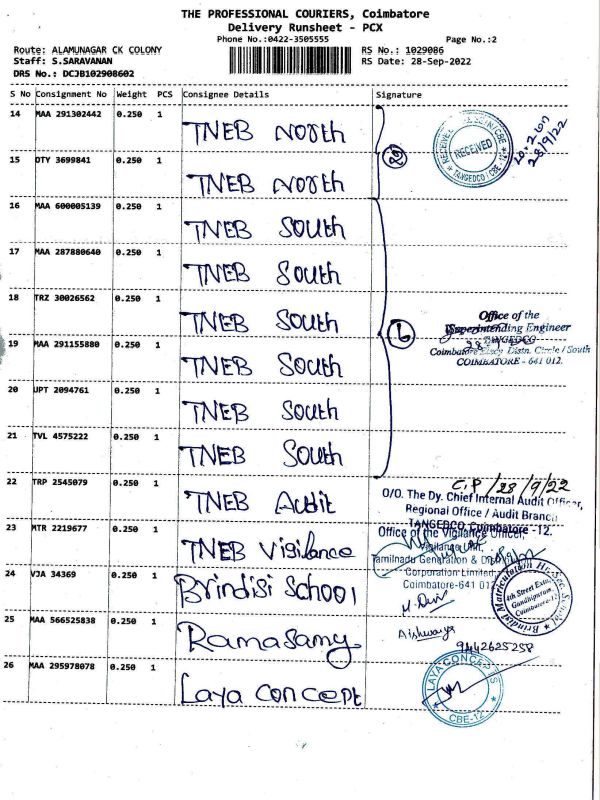 THE PROFESSIONAL COURIERS, Coimbatore
Delivery Runsheet - PCX
Phone No.:0422-3505555
Page No.:2
Route: ALAMUNAGAR CK COLONY
RS No.: 1029086
Staff: S.SARAVANAN
RS Date: 28-Sep-2022
DRS No.: DCJB102908602
S No Consignment No Weight PCS Consignee Details Signature
14 MAA 291302442 0.250 1 TNEB North
RECEIVED
TANGEDCO CBE-12
28/9/22
15 OTY 3699841 0.250 1 TNEB North
16 MAA 600005139 0.250 1 TNEB South
17 MAA 287880640 0.250 1 TNEB South
18 TRZ 30026562 0.250 1 TNEB South
6
Office of the
Superintending Engineer
TANGEDCO
Coimbatore Elecy. Distn. Circle / South
COIMBATORE - 641 012.
19 MAA 291155880 0.250 1 TNEB South
20 UPT 2094761 0.250 1 TNEB South
21 TVL 4575222 0.250 1 TNEB South
22 TRP 2545079 0.250 1 TNEB Audit
28/9/22
O/O. The Dy. Chief Internal Audit Officer,
Regional Office / Audit Branch
TANGEDCO, Coimbatore -12.
23 MTR 2219677 0.250 1 TNEB Vigilance
Office of the Vigilance Officer,
Vigilance Unit,
Tamilnadu Generation &
Corporation Limited
Coimbatore-641
24 VJA 34369 0.250 1 Brindisi School
Brindisi Matriculation Hr. Sec. School
4th Street Extn,
Gandhipuram,
Coimbatore-12
25 MAA 566525838 0.250 1 Ramasamy
Aishwarya
9442625258
26 MAA 295978078 0.250 1 Laya Concept
LAYA CONCEPTS
CBE-12